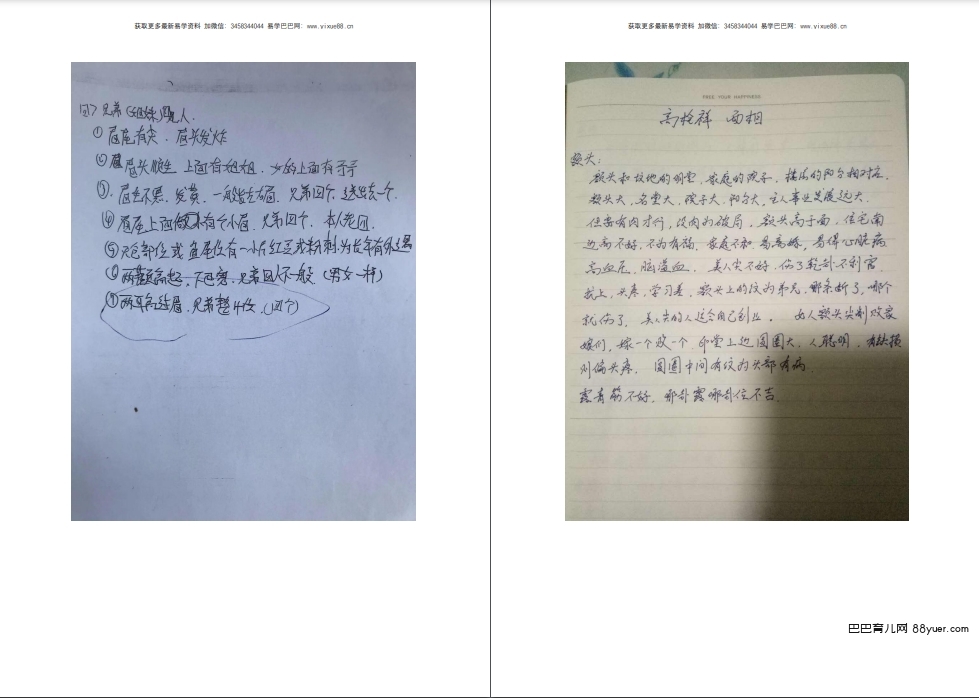 获取更多最新易学资料 加微信：3458344044 易学巴巴网：www.yixue88.cn
四>兄弟(姐妹)几人.
① 眉尾有尖．眉头发炸
② 眉头顺生 上面有姐姐．上面有哥哥
③．眉毛不黑．发黄．一般指左眉．兄弟四个．送出去一个．
④ 眉尾上面有个小眉．兄弟四个．本人老四．
⑤ 部位或鱼尾位有一小片红豆或粉刺．
⑥ 两颧高起．下巴窄．兄弟四人一般．(男女一样)
⑦ 两耳．兄弟 (四个)
获取更多最新易学资料 加微信：3458344044 易学巴巴网：www.yixue88.cn
FREE YOUR HAPPINESS
面相
额头：
额头和坟地的明堂．家庭的院子．楼房的阳台相对应．
额头大．名堂大．院子大．阳台大．主人事业发展远大．
但要有肉才行．没肉为破局．额头高于面．住宅南
边高不好．不为有福．家庭不和．易离婚．易得心脏病
高血压．脑溢血．美人尖不好．伤了乾卦不利官．
头疼．学习差．额头上的纹为弟兄．哪条断了．哪个
就伤了．美人尖的人 自己创业．女人额头尖削败家
娘们．嫁一个败一个．印堂上边圆圈大．人聪明．有缺损
则偏头疼．圆圈中间有纹为头部有病．
露青筋不好．哪卦露哪卦位不吉．
巴巴育儿网 88yuer.com